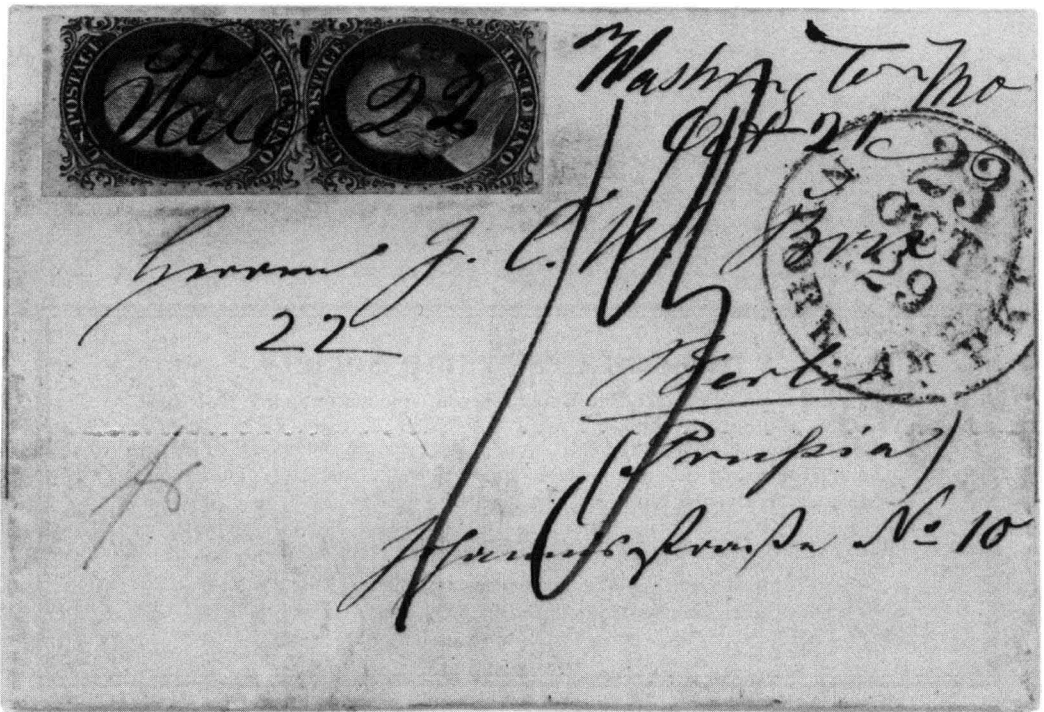 U.S. POSTAGE ONE CENT U.S. POSTAGE ONE CENT
Paid 22
Washington Mo
Oct 21
N. YORK. AM. PKT
23
OCT
29
Herrn J. C. W.
22
Berlin
(Prußia)
Johannisstraße No 10